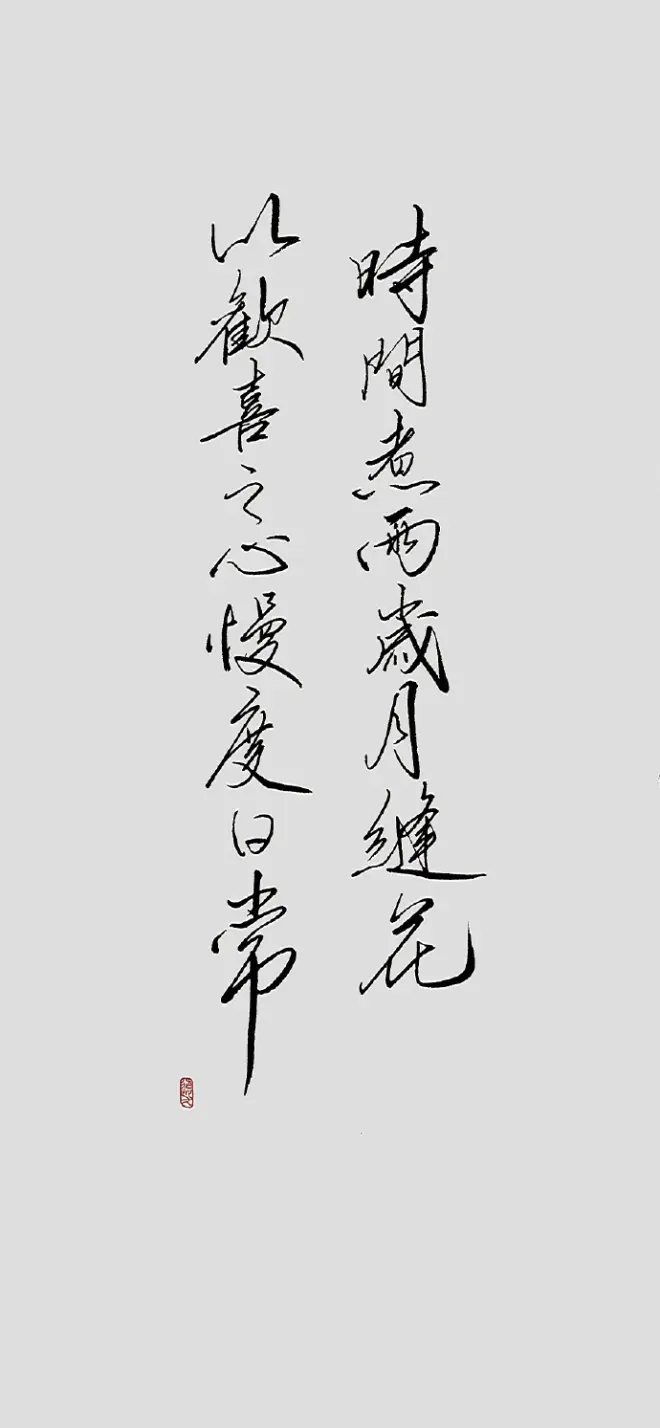 時間煮雨歲月縫花
以歡喜之心慢度日常